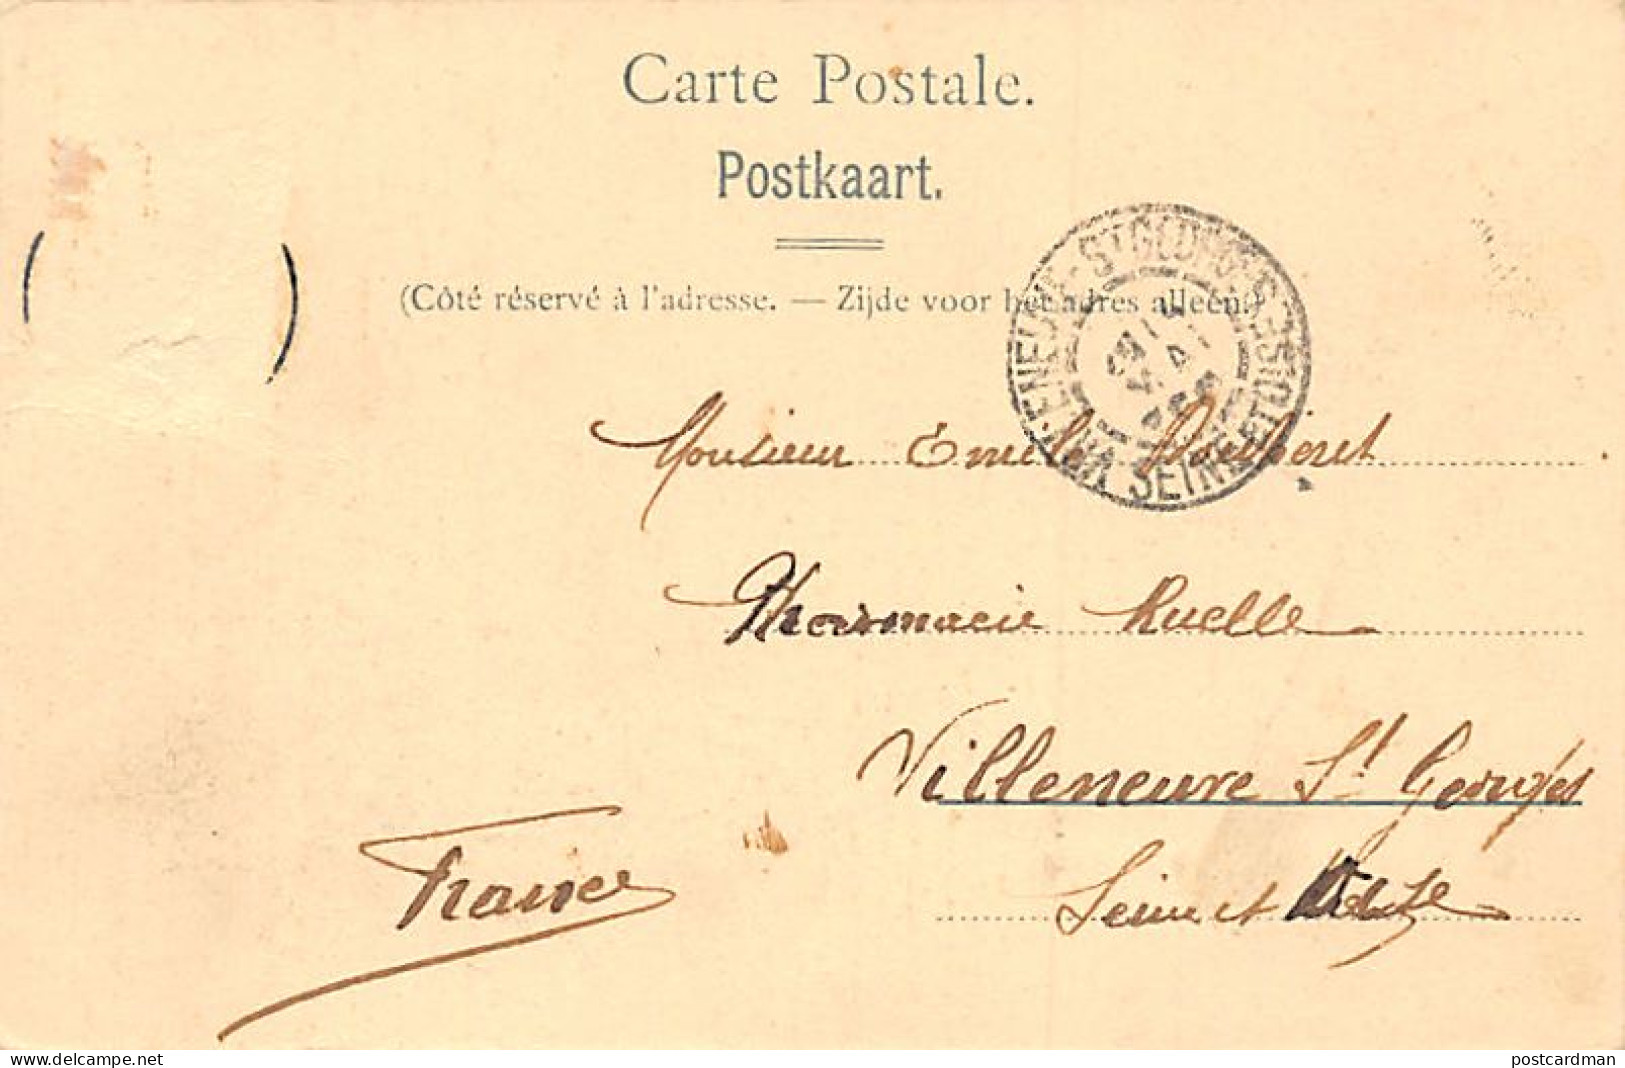 Carte Postale.
Postkaart.
(Côté réservé à l'adresse. — Zijde voor het adres alleen.)
VILLENEUVE-ST GEORGES SEINE ET OISE
Monsieur Emile
Pharmacie Ruelle
Villeneuve St Georges
Seine et
France
delcampe.net
postcardman